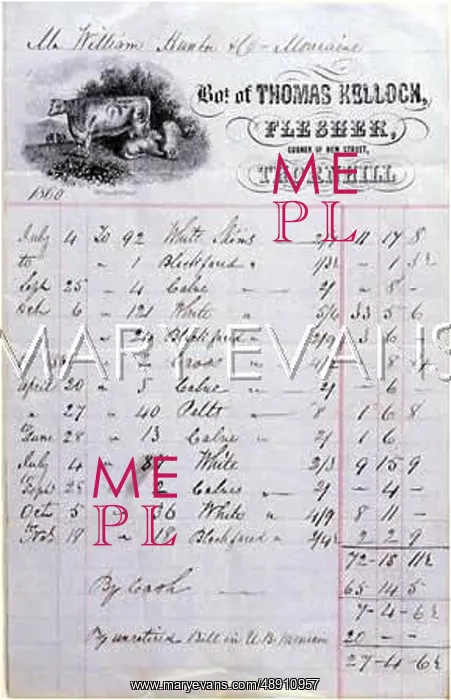 Mr William Hunter & Co - Moniaive
Bot. of THOMAS KELLOCK,
FLESHER,
CORNER OF NEW STREET,
THORNHILL
1860
July 4 To 92 White Skins 11 17 8
to " 1 Blackfaced " 1/3½ - 1 3½
Sept 25 " 4 Calve 2/ - 8 -
Octr 6 " 121 White " 5/6 33 5 6
" Blackfaced " 2/9 3 6
" 2 8
April 20 " 5 Calve " 2/ - 6 -
" 27 " 40 Pelts " 8 1 6 8
June 28 " 13 Calve " 2/ 1 6
July 4 " 87 White 2/3 9 15 9
Sept 25 2 Calves " 2/ - 4 -
Octr 5 " 36 White " 4/9 8 11 -
Novr 18 " 18 Blackfaced " 2/4½ 2 2 9
72-18 11½
By Cash 65 14 5
7-4-6½
By unretired Bill in U.B. Moniaive 20 - -
27-4-6½
MARY EVANS
ME
PL
ME
PL
www.maryevans.com/48910957